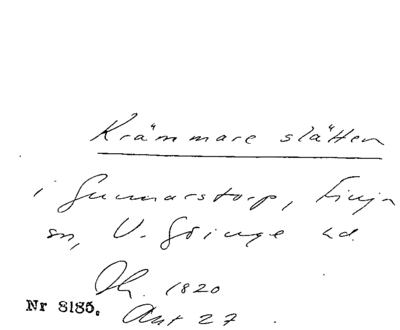 Krämmare slätten
i Gunnarstorp, Finja
sn, V. Göinge hd.
1820
Nr 8185. Ant 27.